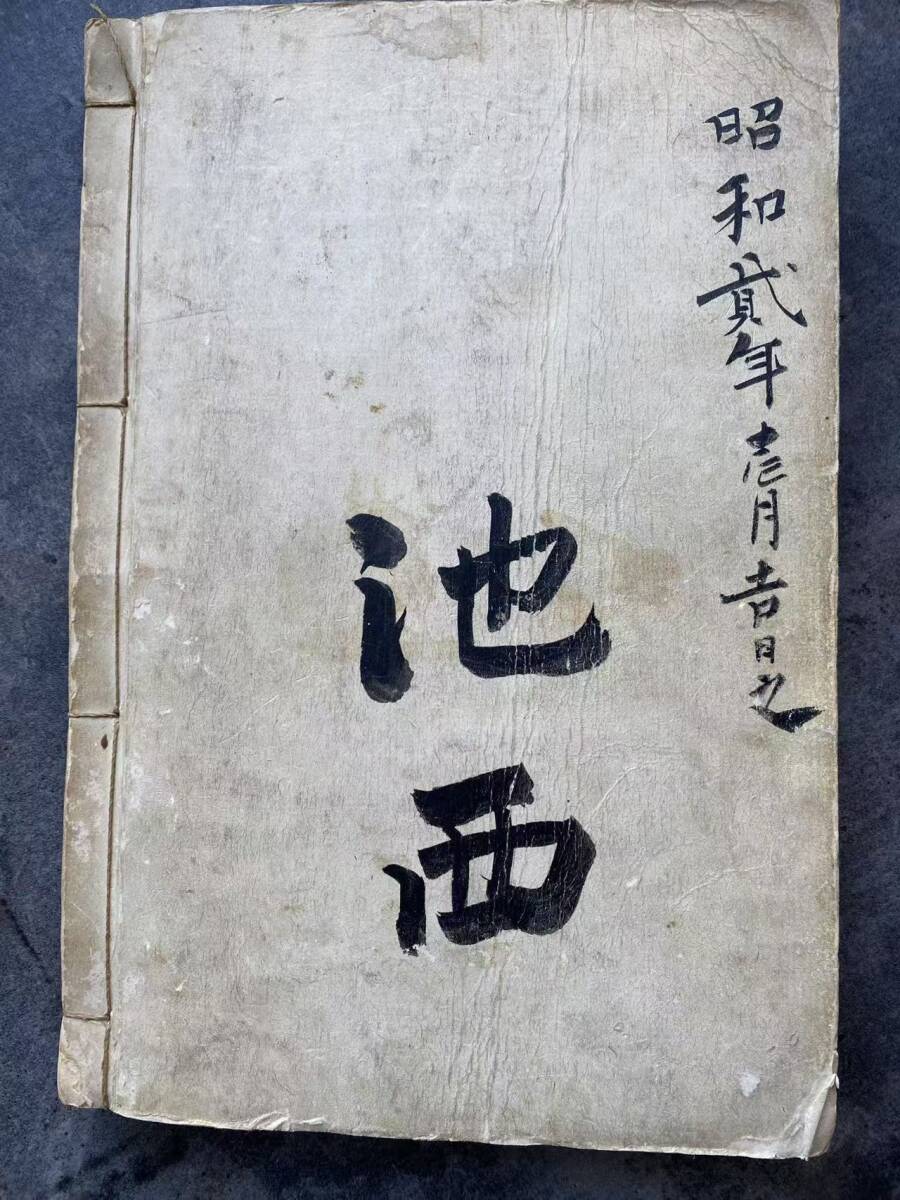 昭和貳年壱月吉日之
池西